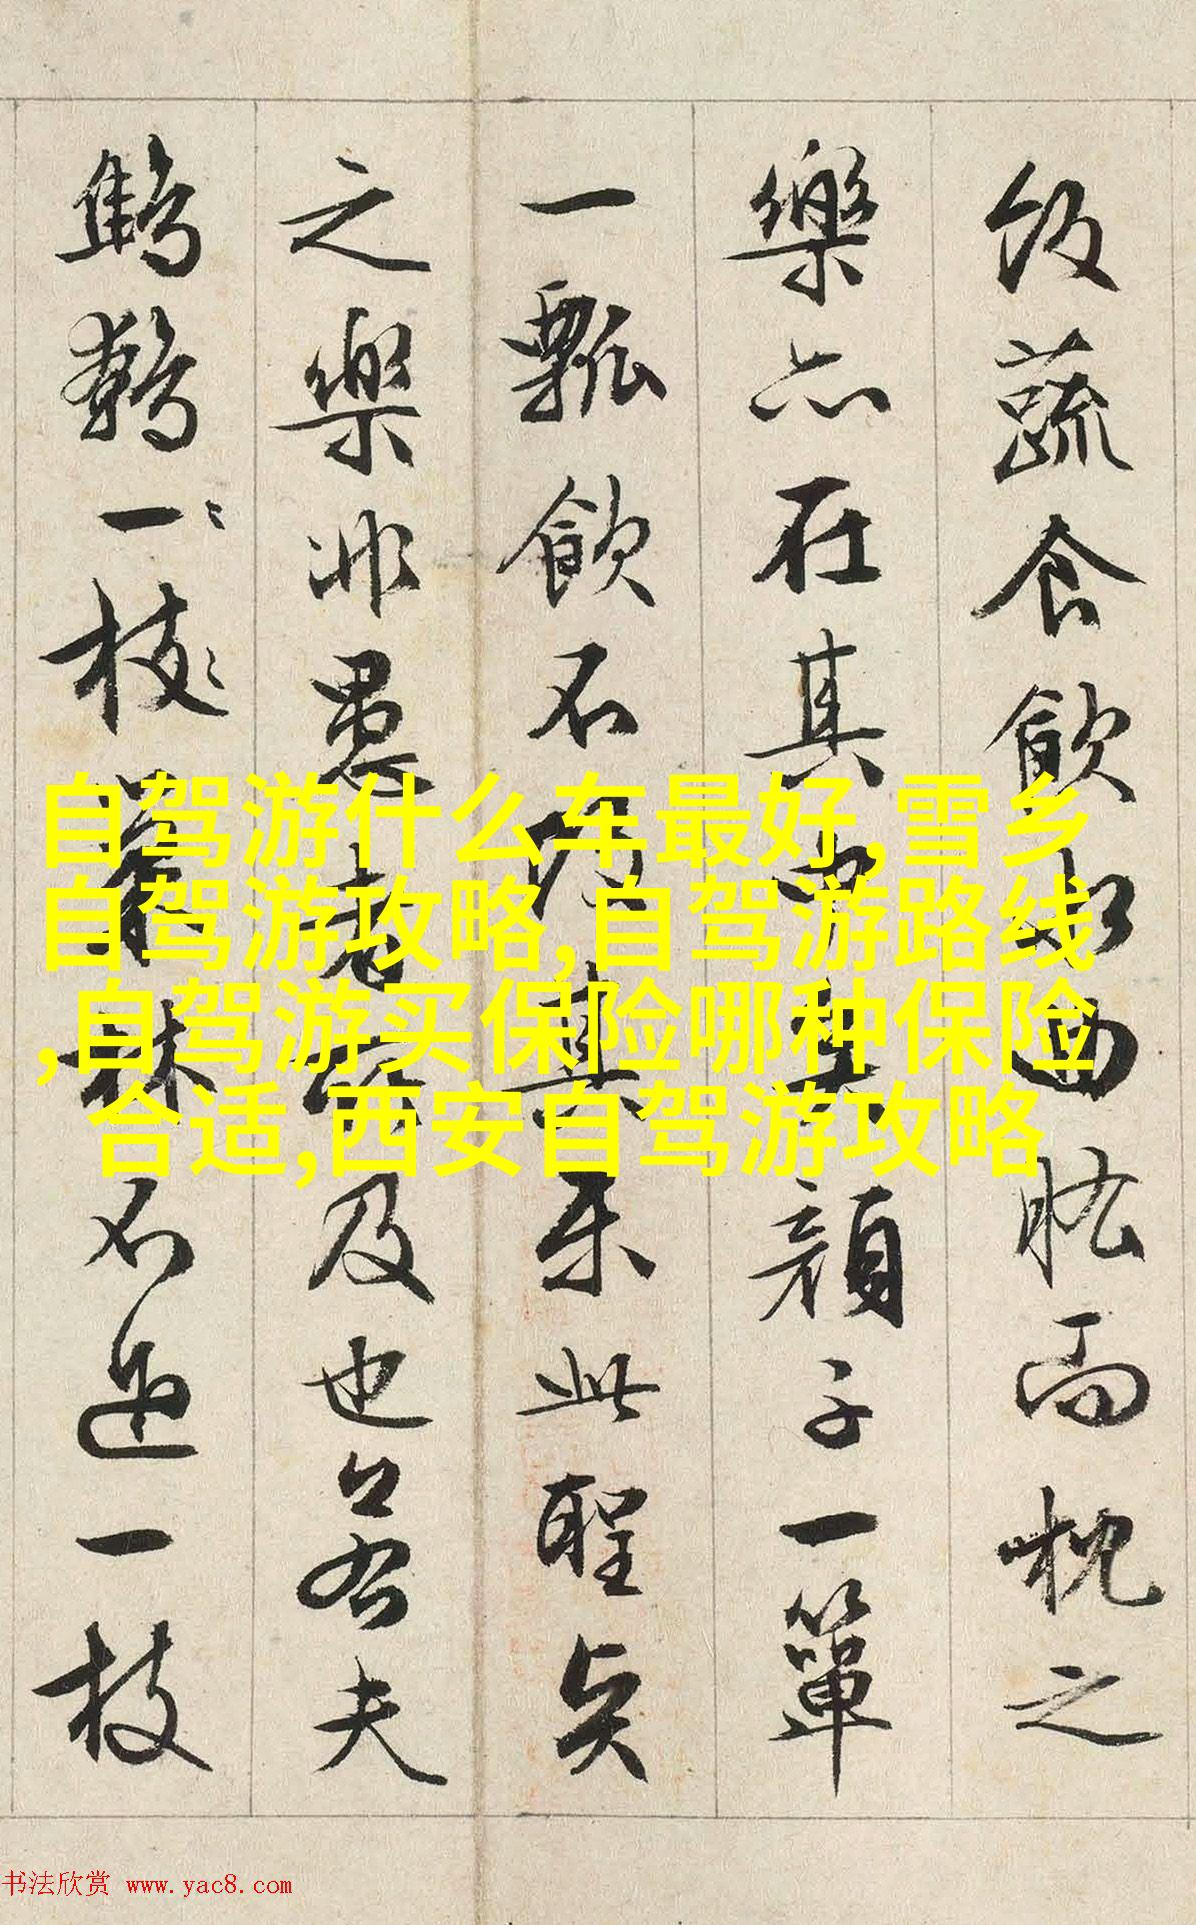 飯蔬食飲水曲肱而枕之
樂亦在其中矣顏子一簞
一瓢飲不改其樂此聖賢
之樂非愚者所及也若夫
鷦鷯一枝巢林不過一枝
自驾游什么车最好,雪乡
自驾游攻略,自驾游路线
,自驾游买保险哪种保险
合适,西安自驾游攻略
书法欣赏 www.yac8.com